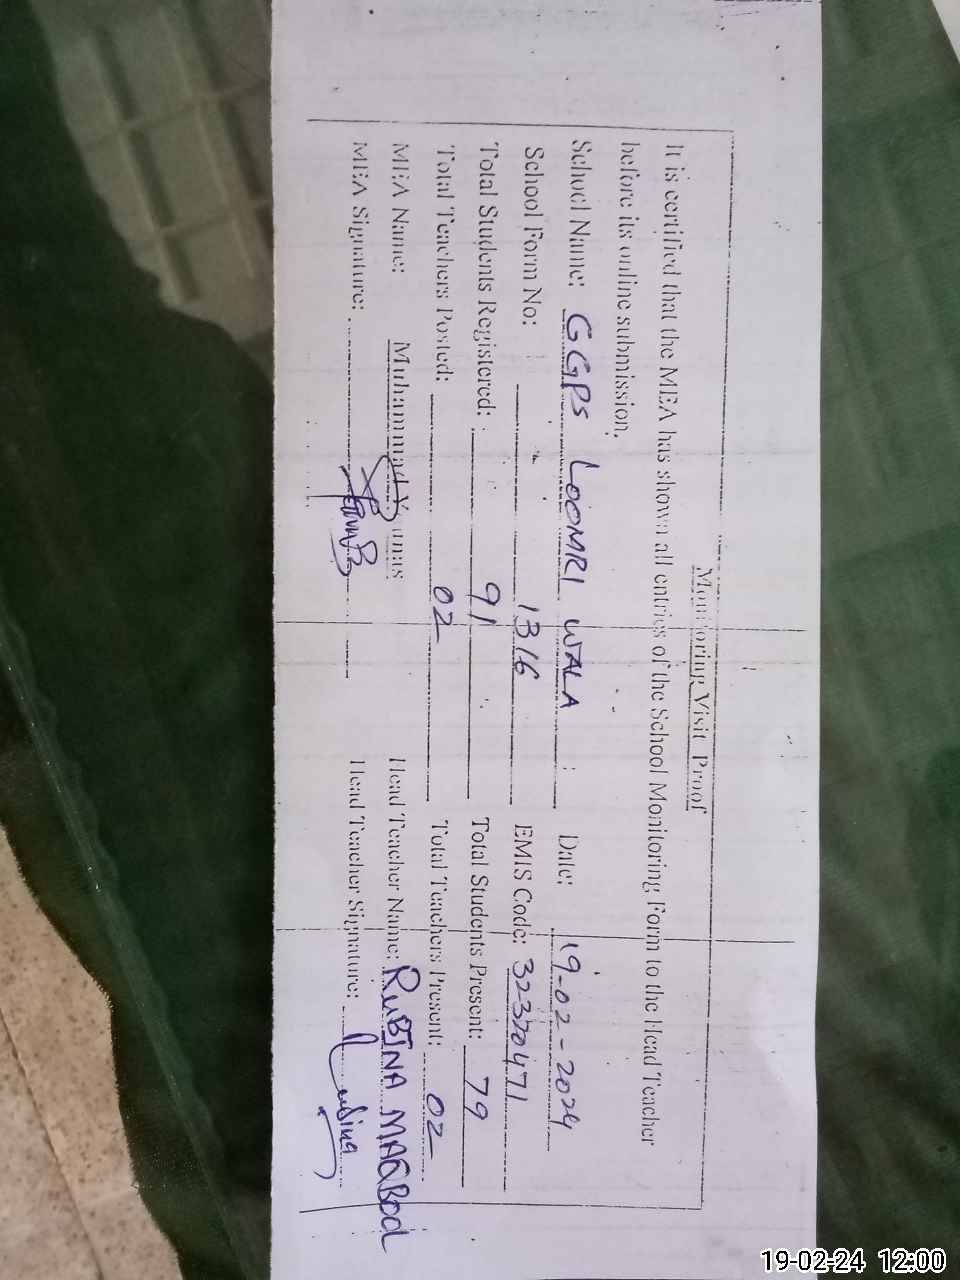 Monitoring Visit Proof
It is certified that the MEA has shown all entries of the School Monitoring Form to the Head Teacher
before its online submission.
School Name: GGPS LOOMRI WALA Date: 19-02-2024
School Form No: 1316 EMIS Code: 32330471
Total Students Registered: 91 Total Students Present: 79
Total Teachers Posted: 02 Total Teachers Present: 02
MEA Name: Muhammad Younas Head Teacher Name: RUBINA MAQBOOL
MEA Signature: Head Teacher Signature: Rubina
19-02-24 12:00